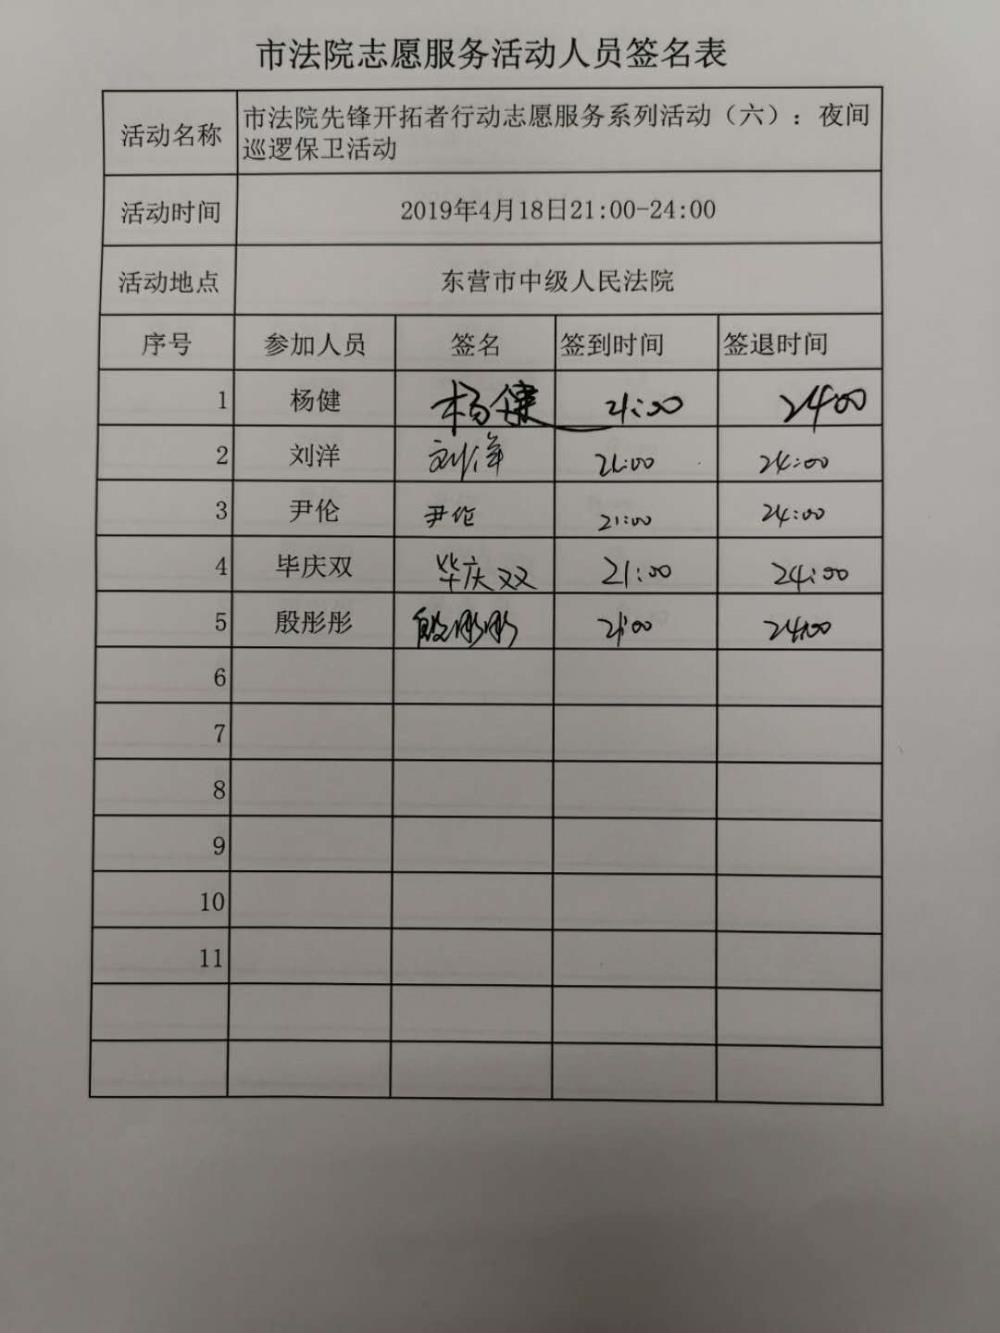 市法院志愿服务活动人员签名表
活动名称 市法院先锋开拓者行动志愿服务系列活动（六）：夜间
巡逻保卫活动
活动时间 2019年4月18日21:00-24:00
活动地点 东营市中级人民法院
序号 参加人员 签名 签到时间 签退时间
1 杨健 杨健 21:00 2400
2 刘洋 刘洋 21:00 24:00
3 尹伦 尹伦 21:00 24:00
4 毕庆双 毕庆双 21:00 24:00
5 殷彤彤 殷彤彤 21:00 24:00
6
7
8
9
10
11